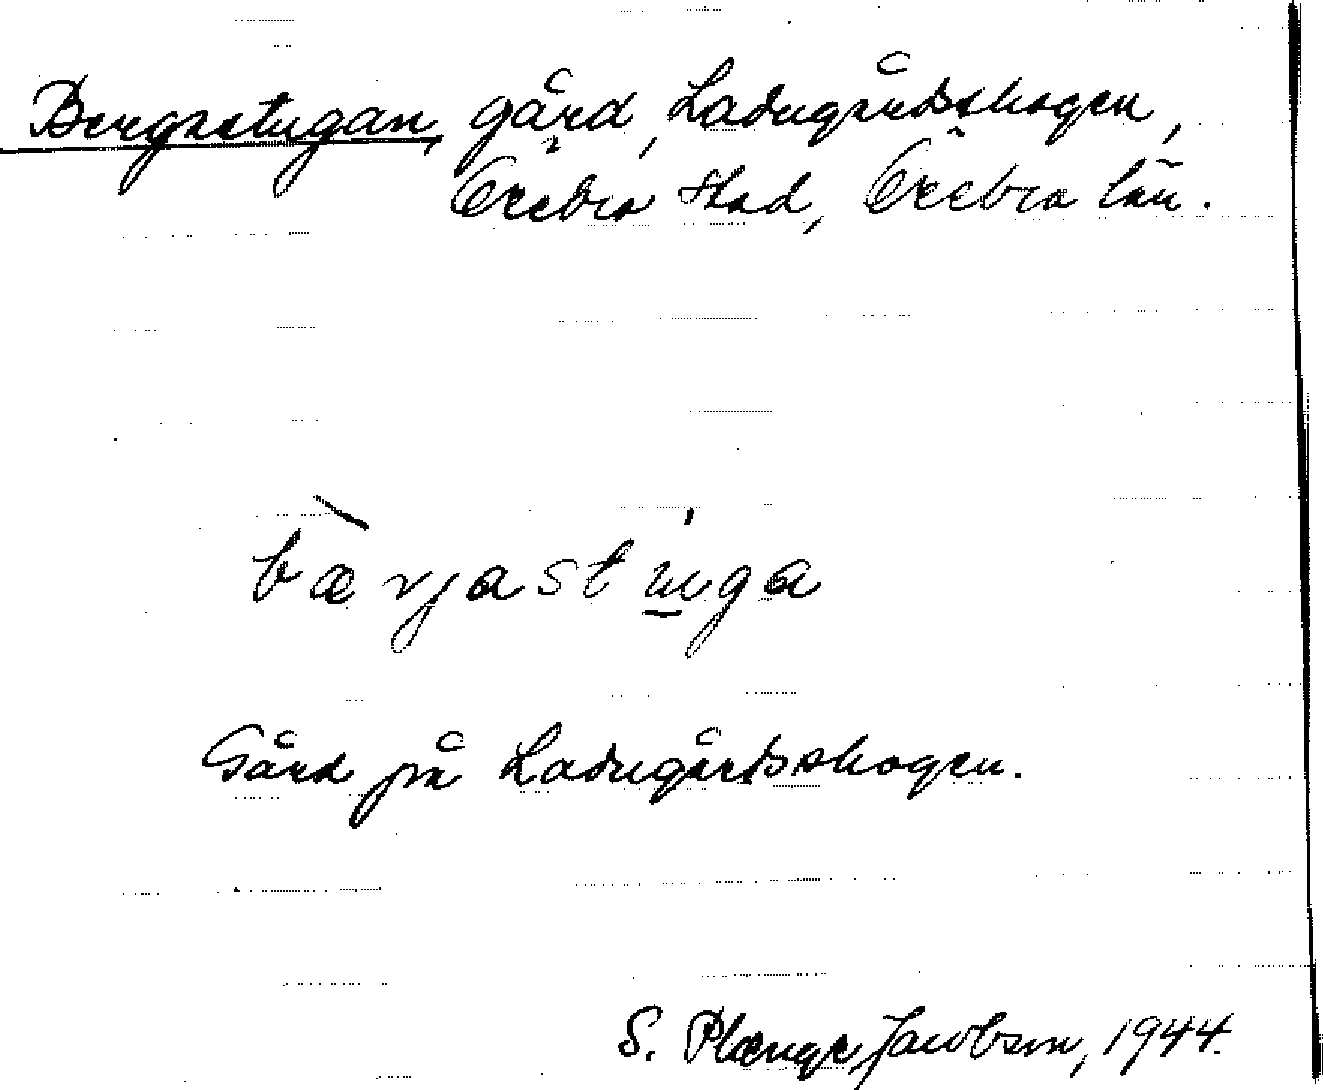 Bergsstugan, gård, Ladugårdsskogen,
Örebro stad, Örebro län.
bærjastuga
Gård på Ladugårdsskogen.
S. Plænge Jacobson, 1944.